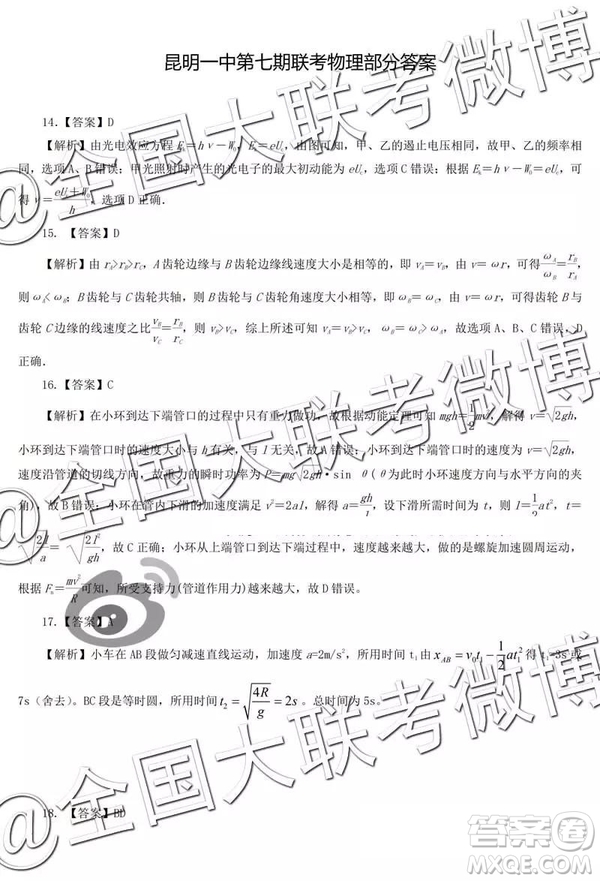 昆明一中第七期联考物理部分答案
14.【答案】D
【解析】由光电效应方程 Eₖ=hν-W₀,Eₖ=eU꜀,由图可知,甲、乙的遏止电压相同,故甲、乙的频率相
同,选项A、B错误;甲光照射时产生的光电子的最大初动能为eU꜀,选项C错误;根据Eₖ=hν-W₀=eU꜀,可
得 ν=(eU꜀+W₀)/h,选项D正确.
15.【答案】D
【解析】由 r_A>r_B>r_C,A齿轮边缘与B齿轮边缘线速度大小是相等的,即 v_A=v_B,由 v=ωr,可得ω_A/ω_B=r_B/r_A
则 ω_A<ω_B;B齿轮与C齿轮共轴,则B齿轮与C齿轮角速度大小相等,即 ω_B=ω_C,由 v=ωr,可得齿轮B与
齿轮C边缘的线速度之比v_B/v_C=r_B/r_C,则 v_B>v_C,综上所述可知 v_A>v_C,故选项A、B、C错误、D
正确.
16.【答案】C
【解析】在小环到达下端管口的过程中只有重力做功,故根据动能定理可知 mgh=1/2mv²,解得 v=√2gh,
小环到达下端管口时的速度大小与 h 有关,与 l 无关,故A错误;小环到达下端管口时的速度为 v=√2gh,
速度沿管道的切线方向,故重力的瞬时功率为 P=mg√2gh·sin θ(θ为此时小环速度方向与水平方向的夹
角),故B错误;小环在管内下滑的加速度满足 v²=2al,解得 a=gh/l,设下滑所需时间为 t,则 l=1/2at²,t=
√2l/a=√2l²/gh,故C正确;小环从上端管口到达下端过程中,速度越来越大,做的是螺旋加速圆周运动,
根据 Fₙ=mv²/R可知,所受支持力(管道作用力)越来越大,故D错误。
17.【答案】A
【解析】小车在AB段做匀减速直线运动,加速度a=2m/s²,所用时间t₁由 x_AB=v₀t₁-1/2at₁² 得t₁=3s或
7s(舍去)。BC段是等时圆,所用时间t₂=√4R/g=2s。总时间为5s。
18.【答案】BD
@全国大联考微博
@全国大联考微博
@全国大联考微博
答案卷
MXQE.COM